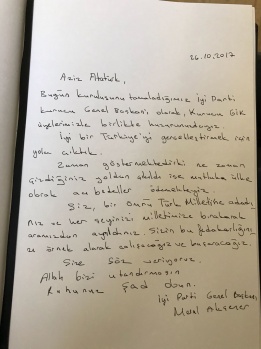 26.10.2017
Aziz Atatürk,
Bugün kuruluşunu tamamladığımız İyi Parti
kurucu Genel Başkanı olarak, Kurucu GİK
üyelerimizle birlikte huzurundayız.
İyi bir Türkiye'yi gerçekleştirmek için
yola çıktık.
Zaman göstermektedirki ne zaman
çizdiğiniz yoldan çıkıldı ise mutlaka ülke
olarak ağır bedeller ödemekteyiz
Siz, bir ömrü Türk Milletine adadı
nız ve her şeyinizi milletimize bırakarak
aramızdan ayrıldınız. Sizin bu fedakarlığını
zı örnek alarak çalışacağız ve başaracağız.
Size söz veriyoruz.
Allah bizi utandırmasın
Ruhunuz şad olsun.
İyi Parti Genel Başkanı
Meral Akşener